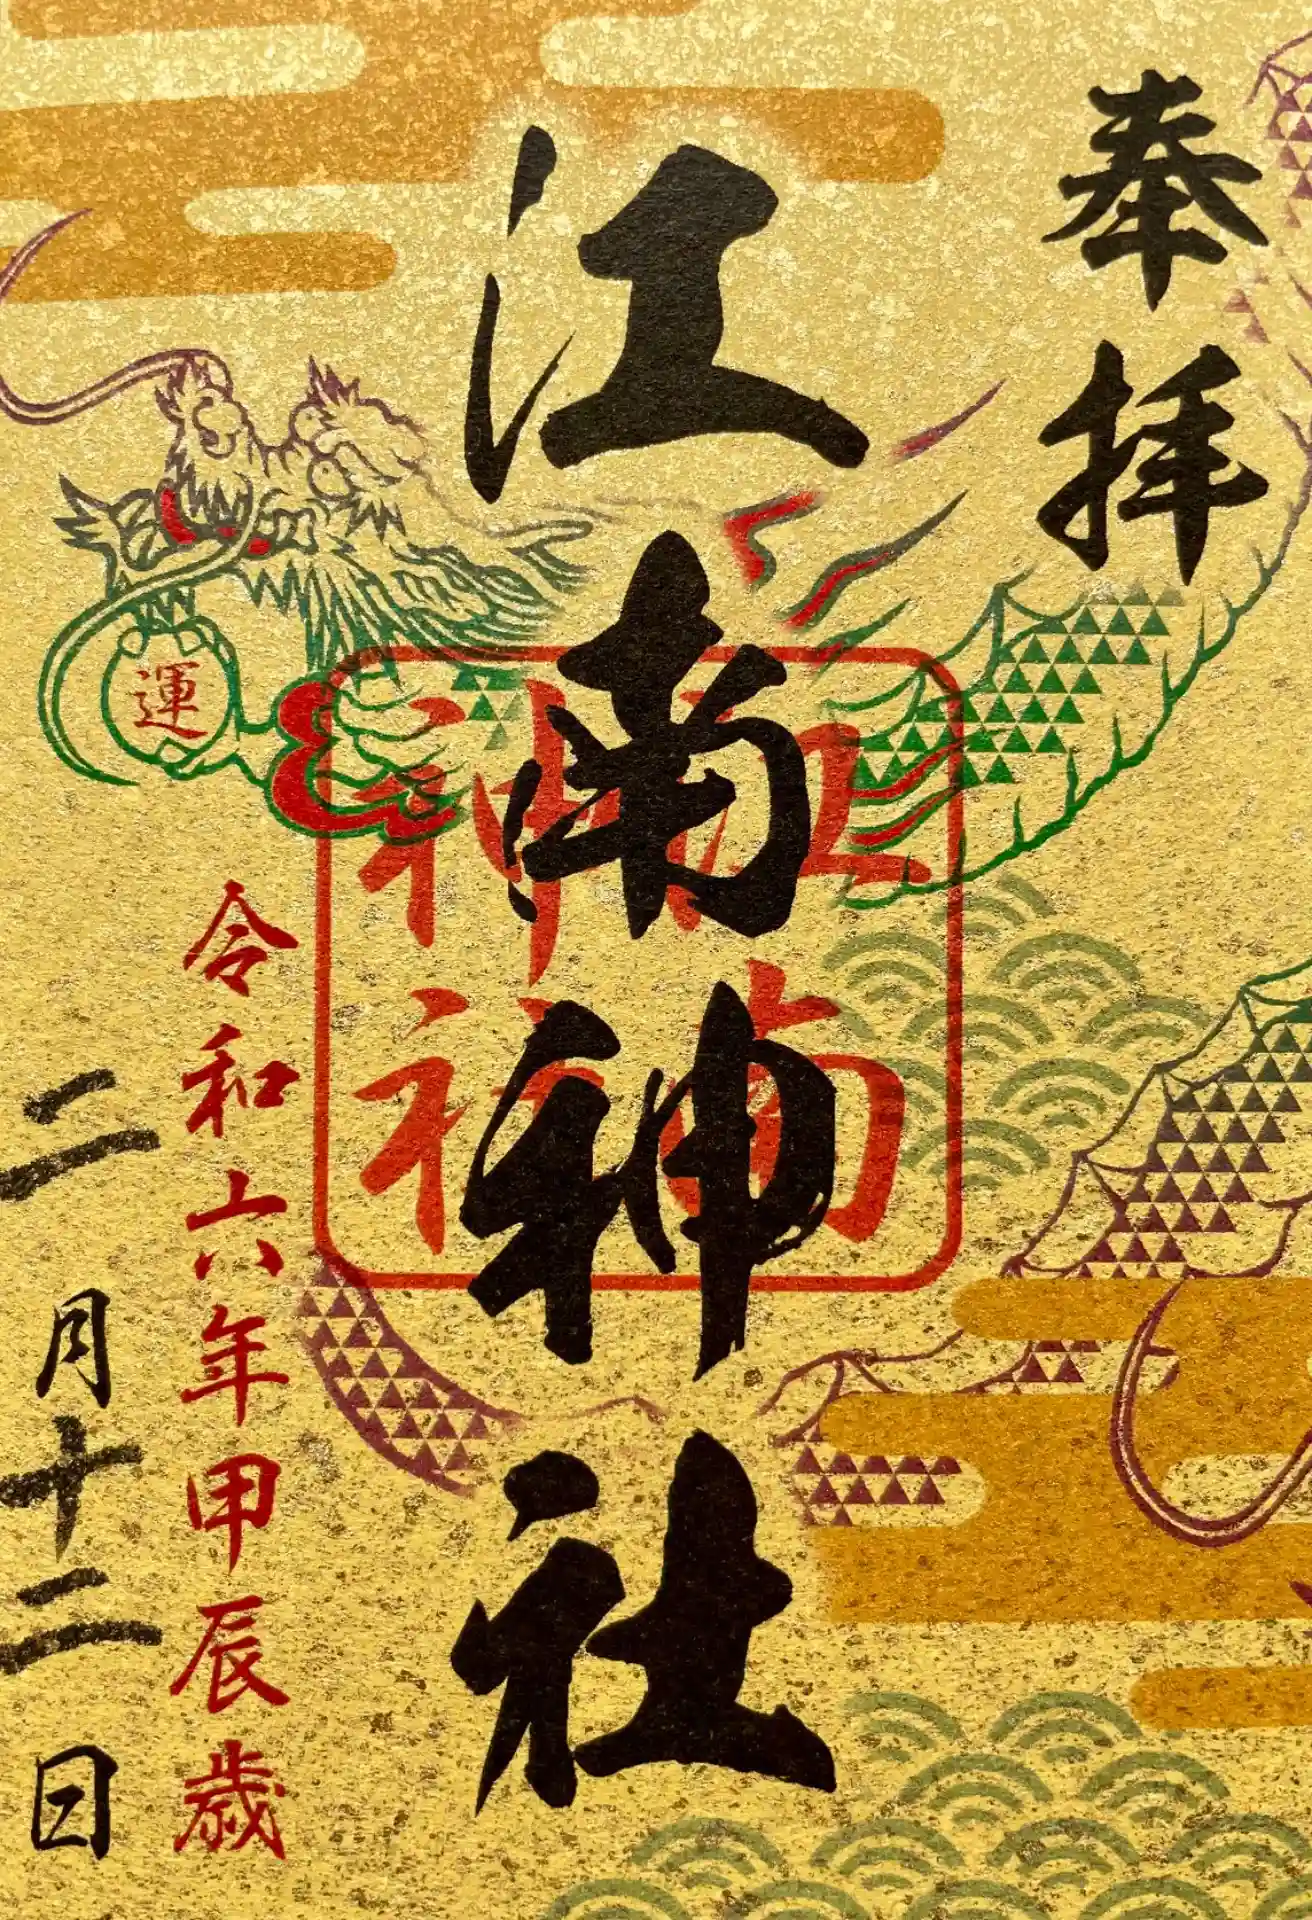 奉拝
江南神社
江南
神社
運
令和六年甲辰歳
二月十二日